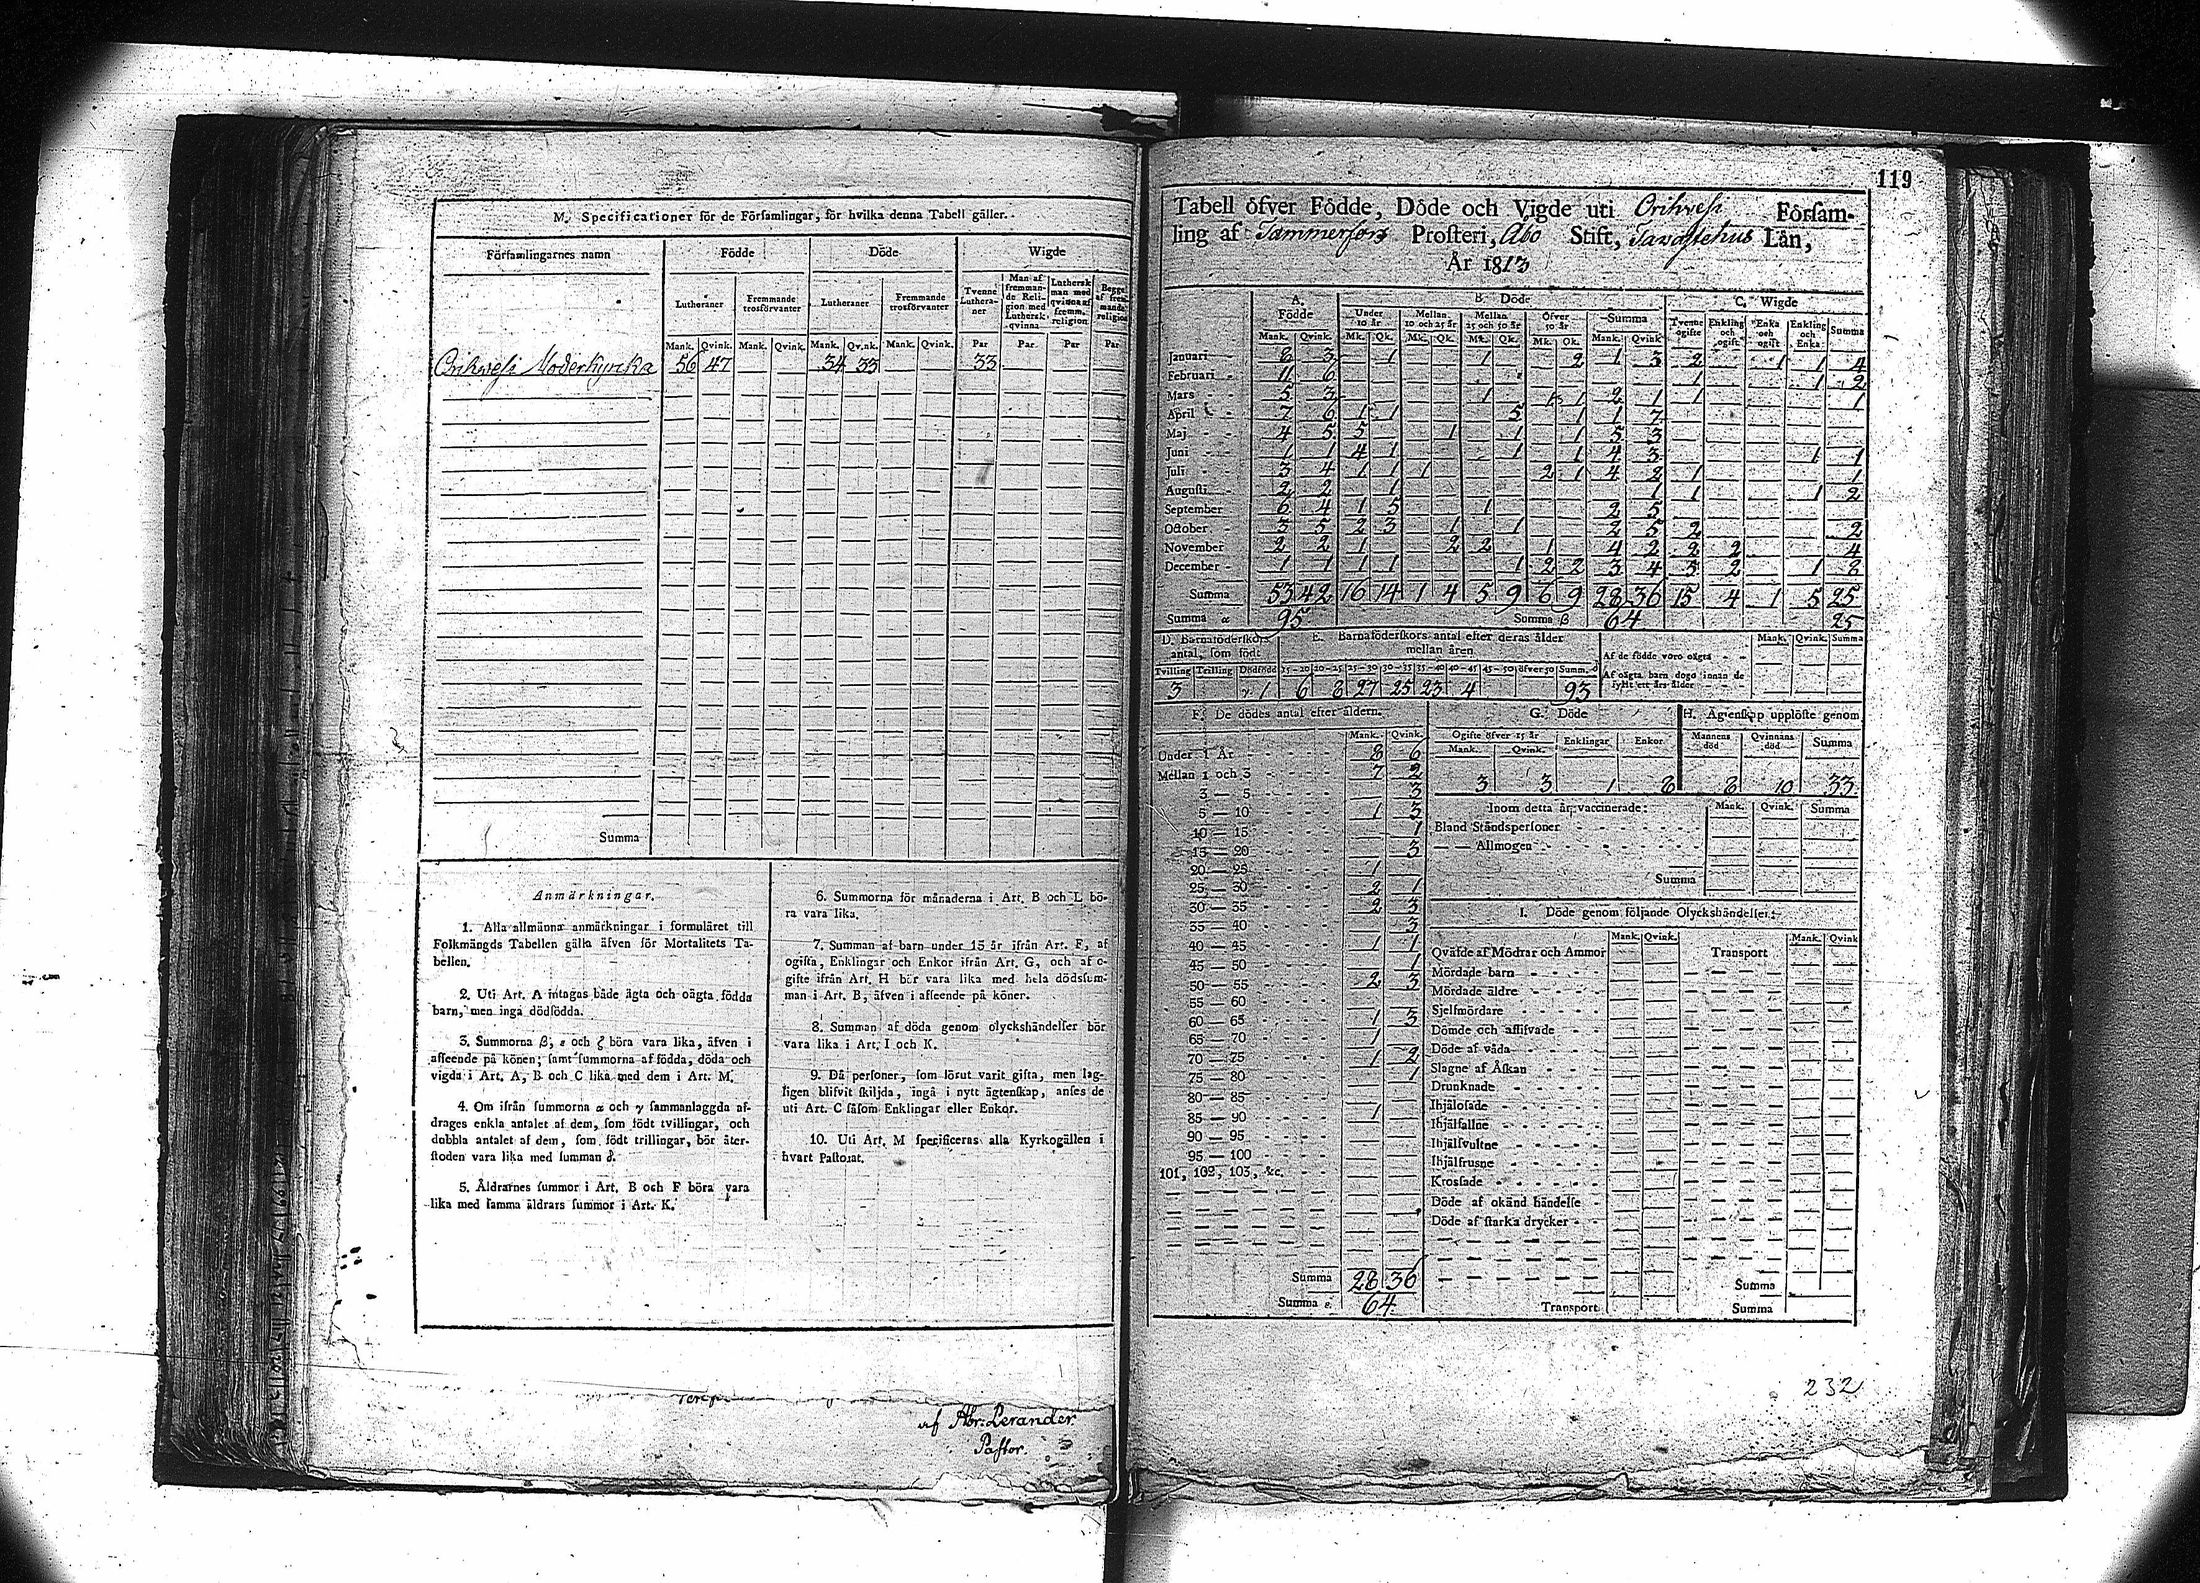 M. Specificationer för de Församlingar, för hvilka denna Tabell gäller.
Församlingarnes namn Födde Döde Wigde
Lutheraner Fremmande trosförvanter Lutheraner Fremmande trosförvanter Tvenne Lutheraner Man af fremmande Religion med Luthersk qvinna Luthersk man med qvinna af fremm. religion Begge af fremmande religion
Mank. Qvink. Mank. Qvink. Mank. Qvink. Mank. Qvink. Par Par Par Par
Orihvesi Moderkyrcka 56 47 34 33 33
Summa
Anmärkningar.
1. Alla allmänna anmärkningar i formuläret till
Folkmängds Tabellen gälla äfven för Mortalitets Ta-
bellen.
2. Uti Art. A intagas både ägta och oägta födda
barn, men inga dödfödda.
3. Summorna β, ε och ζ böra vara lika, äfven i
afseende på könen; samt summorna af födda, döda och
vigda i Art. A, B och C lika med dem i Art. M.
4. Om ifrån summorna α och γ sammanlaggda af-
drages enkla antalet af dem, som födt tvillingar, och
dubbla antalet af dem, som födt trillingar, bör åter-
stoden vara lika med summan δ.
5. Åldrarnes summor i Art. B och F böra vara
lika med samma åldrars summor i Art. K.
6. Summorna för månaderna i Art. B och L bö-
ra vara lika.
7. Summan af barn under 15 år ifrån Art. F, af
ogifta, Enklingar och Enkor ifrån Art. G, och af
gifte ifrån Art. H bör vara lika med hela dödssum-
man i Art. B, äfven i afseende på köner.
8. Summan af döda genom olyckshändelser bör
vara lika i Art. I och K.
9. Då personer, som förut varit gifta, men lag-
ligen blifvit skiljda, ingå i nytt ägtenskap, anses de
uti Art. C såsom Enklingar eller Enkor.
10. Uti Art. M specificeras alla Kyrkogällen i
hvart Pastorat.
af Abr: Lerander
Pastor
119
Tabell öfver Födde, Döde och Vigde uti Orihvesi Försam-
ling af Tammerfors Prosteri, Åbo Stift, Tavastehus Län,
År 1813
A. Födde B. Döde C. Wigde
Under 10 år Mellan 10 och 25 år Mellan 25 och 50 år Öfver 50 år Summa Tvenne ogifte Enkling och ogift Enka och ogift Enkling och Enka Summa
Mank. Qvink. Mk. Qk. Mk. Qk. Mk. Qk. Mk. Qk. Mank. Qvink.
Januari 8 3 1 1 2 1 3 2 1 1 4
Februari 11 6 1 1 2
Mars 5 3 1 1 1 2 1 1 1
April 7 6 1 1 5 1 1 7
Maj 4 5 5 1 1 1 5 3
Juni 1 1 4 1 1 1 4 3 1 1
Juli 3 4 1 1 1 2 1 4 2 1 1
Augusti 2 2 1 1 1 1 2
September 6 4 1 5 1 2 5
October 3 5 2 3 1 1 2 5 2 2
November 2 2 1 2 2 1 4 2 2 2 4
December 1 1 1 1 1 2 2 3 4 5 2 1 8
Summa 53 42 16 14 1 4 5 9 6 9 28 36 15 4 1 5 25
Summa α 95 Summa β 64 25
D. Barnaföderskors antal, som födt
Tvilling Trilling Dödfödd
3 1
E. Barnaföderskors antal efter deras ålder
mellan åren
15-20 20-25 25-30 30-35 35-40 40-45 45-50 öfver 50 Summ. δ
6 8 27 25 23 4 93
Mank. Qvink. Summa
Af de födde voro oägta
Af oägta barn dogo innan de
fyllt ett års ålder
F. De dödes antal efter åldern.
Mank. Qvink.
Under 1 År 8 6
Mellan 1 och 3 7 2
3 — 5 3
5 — 10 1 3
10 — 15 1
15 — 20 3
20 — 25 1
25 — 30 2 1
30 — 35 2 3
35 — 40 3
40 — 45 1 1
45 — 50 1
50 — 55 2 3
55 — 60
60 — 65 1 3
65 — 70 1
70 — 75 1 2
75 — 80 1
80 — 85
85 — 90 1
90 — 95
95 — 100
101, 102, 103, &c.
Summa 28 36
Summa ε 64
G. Döde
Ogifte öfver 15 år Enklingar Enkor
Mank. Qvink.
3 3 1 8
H. Ägtenskap upplöste genom
Mannens död Qvinnans död Summa
8 10 33
Inom detta år vaccinerade: Mank. Qvink. Summa
Bland Ståndspersoner
— — Allmogen
Summa
I. Döde genom följande Olyckshändelser:
Mank. Qvink. Mank. Qvink
Qväfde af Mödrar och Ammor Transport
Mördade barn
Mördade äldre
Sjelfmördare
Dömde och aflifvade
Döde af våda
Slagne af Åskan
Drunknade
Ihjälosade
Ihjälfallne
Ihjälsvultne
Ihjälfrusne
Krossade
Döde af okänd händelse
Döde af starka drycker
Summa
Transport Summa
232